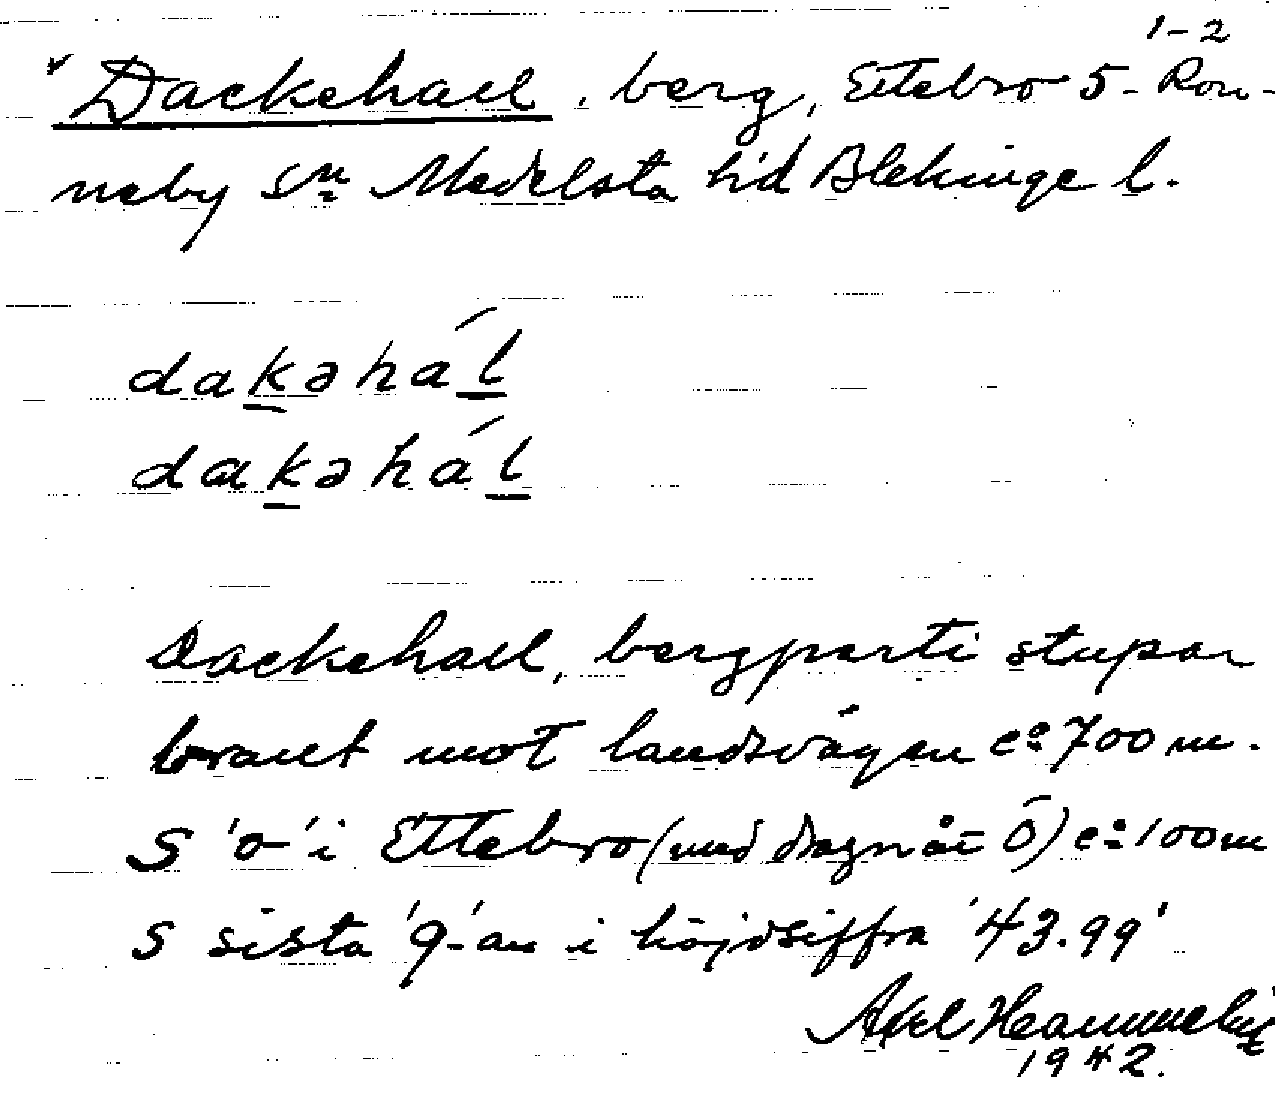 1-2
Dackehall, berg, Ettebro 5- Ron-
neby sn Medelsta hd Blekinge l.
dakəhál
dakəhál
Dackehall, bergparti stupar
brant mot landsvägen ca 700 m.
S 'o' i Ettebro (med dragn åt Ö) ca 100 m
S sista '9'-an i höjdsiffra '43.99'
Axel
1942.